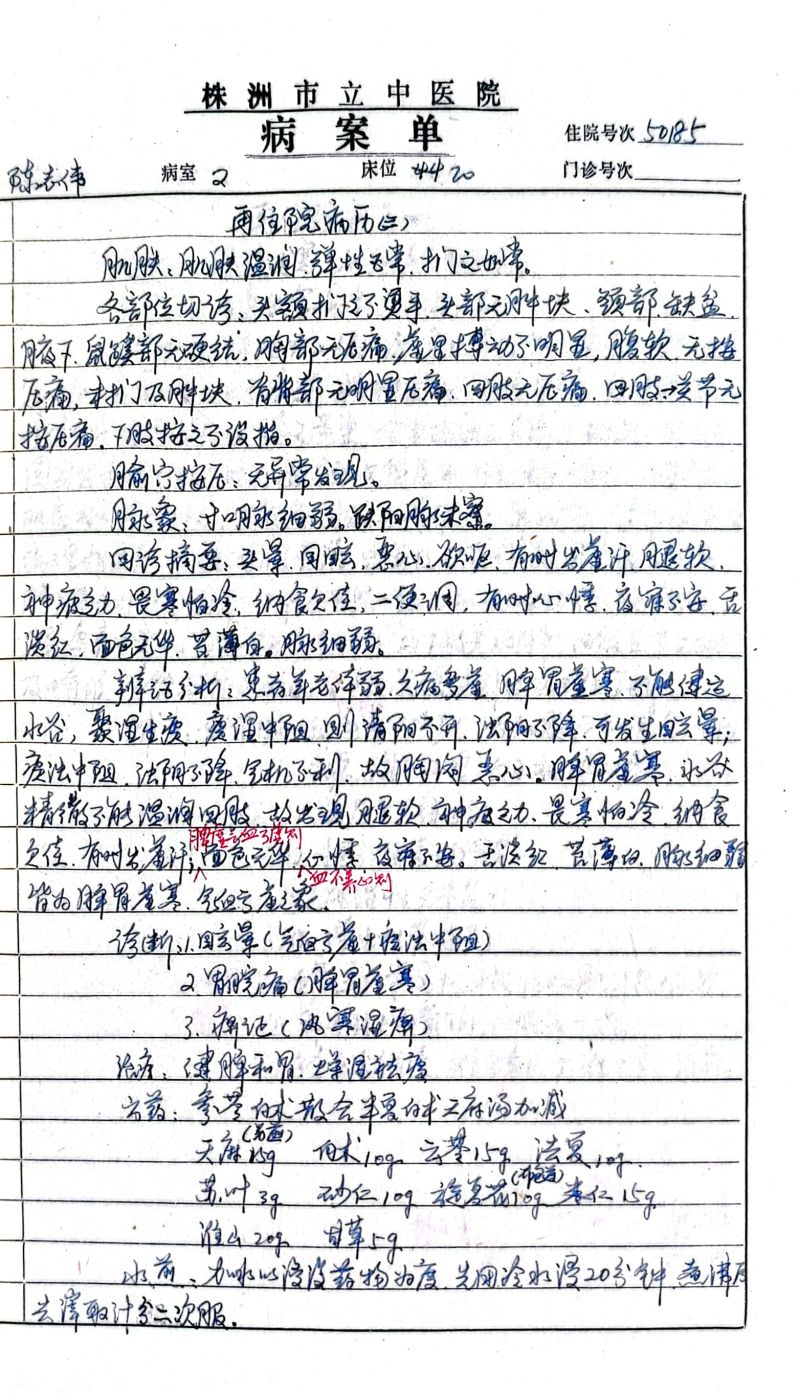 株洲市立中医院
病案单
住院号次 50185
陈志伟 病室 2 床位 4420 门诊号次
再住院病历(二)
肌肤：肌肤温润、弹性正常、扪之如常。
各部位切诊：头额扪之不烫手、头部无肿块、颈部、缺盆、
腋下、鼠蹊部无硬结，胸部无压痛，虚里搏动不明显，腹软、无按
压痛，未扪及肿块，脊背部无明显压痛、四肢无压痛、四肢关节无
按压痛、下肢按之不没指。
腧穴按压：无异常发现。
脉象：寸口脉细弱。趺阳脉未察。
四诊摘要：头晕、目眩、恶心、欲呕、有时出虚汗、腿软、
神疲乏力、畏寒怕冷、纳食欠佳、二便调、有时心悸、夜寐不安、舌
淡红、面色无华、苔薄白。脉细弱。
辨证分析：患者年老体弱、久病多虚、脾胃虚寒、不能健运
水谷，聚湿生痰、痰湿中阻、则清阳不升、浊阴不降、可发生眩晕，
痰浊中阻、浊阴不降、气机不利、故胸闷、恶心。脾胃虚寒、水谷
精微不能温润四肢、故出现腿软、神疲乏力、畏寒怕冷、纳食
欠佳、有时出虚汗；面色无华、心悸、夜寐不安。舌淡红、苔薄白、脉细弱
血不养心则
皆为脾胃虚寒、气血亏虚之象。
诊断：1.眩晕(气血亏虚+痰浊中阻)
2.胃脘痛(脾胃虚寒)
3.痹证(风寒湿痹)
治疗：健脾和胃、燥湿祛痰
方药：参苓白术散合半夏白术天麻汤加减
天麻15g 白术10g 云苓15g 法夏10g
苏叶3g 砂仁10g 旋复花10g(布包煎) 枣仁15g
淮山20g 甘草5g
水煎：加水以浸没药物为度、先用冷水浸20分钟、煮沸后
去滓取汁分二次服。